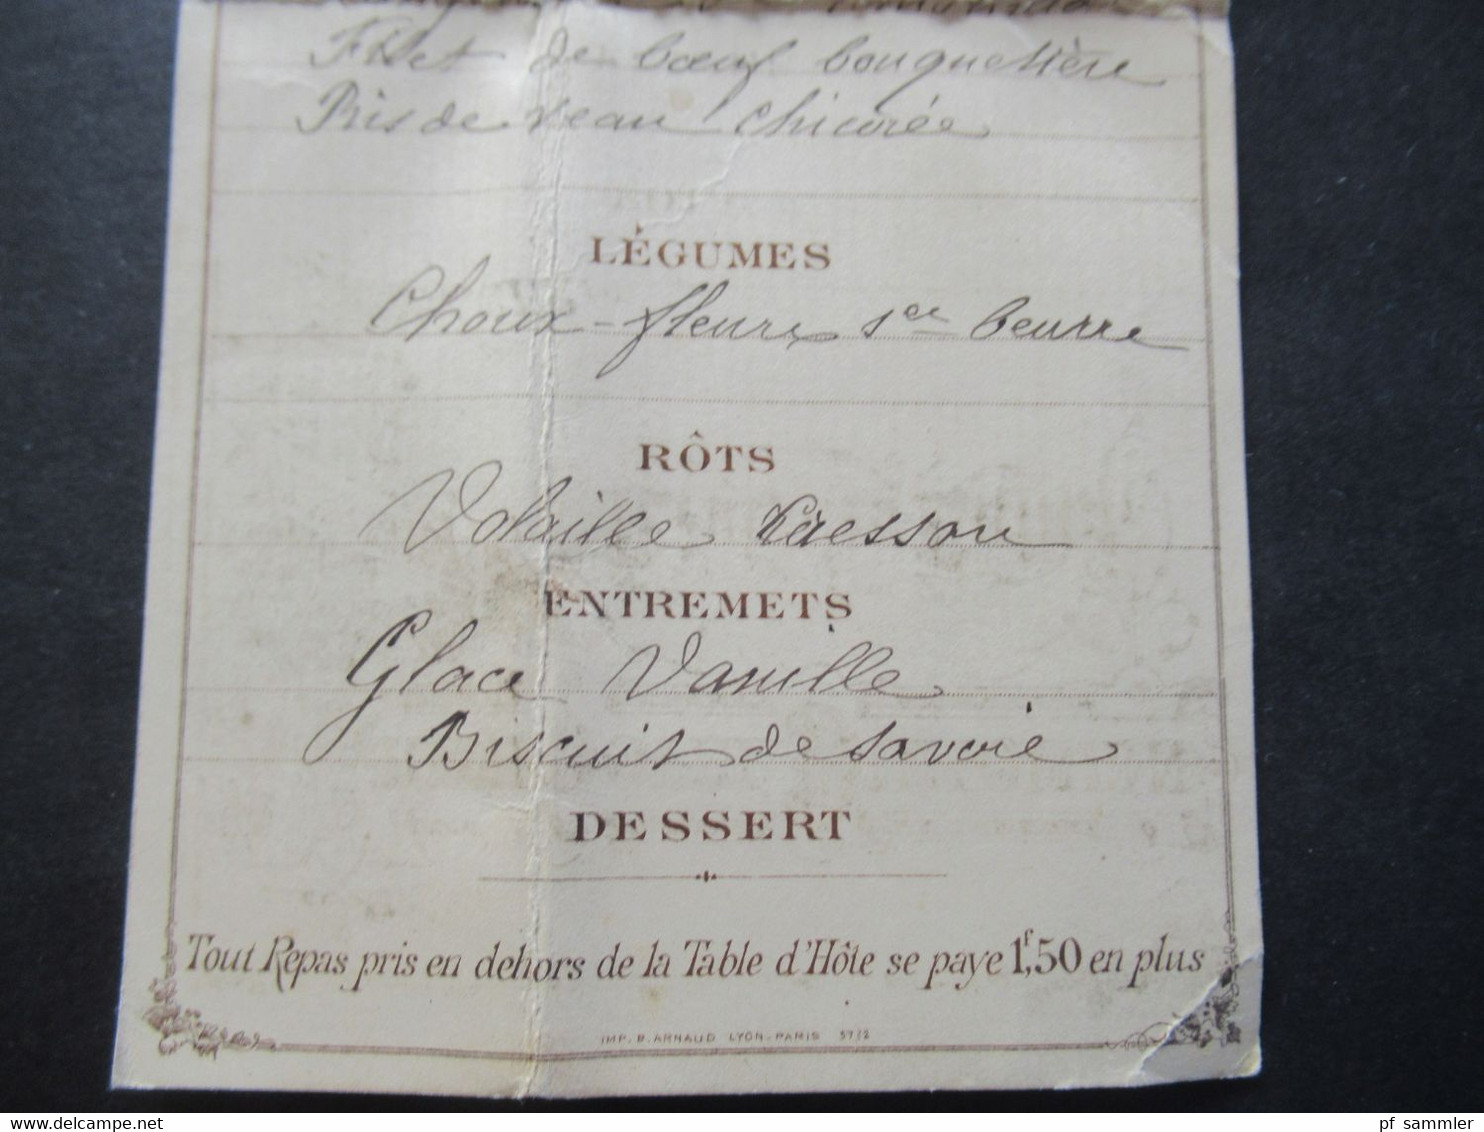 Filet de bœuf bouquetière
Ris de veau chicorée
LÉGUMES
Choux-fleurs sce beurre
RÔTS
Volaille cresson
ENTREMETS
Glace Vanille
Biscuit de Savoie
DESSERT
Tout Repas pris en dehors de la Table d'Hôte se paye 1f,50 en plus
IMP. B. ARNAUD LYON-PARIS 57/2
www.delcampe.net
pf sammler